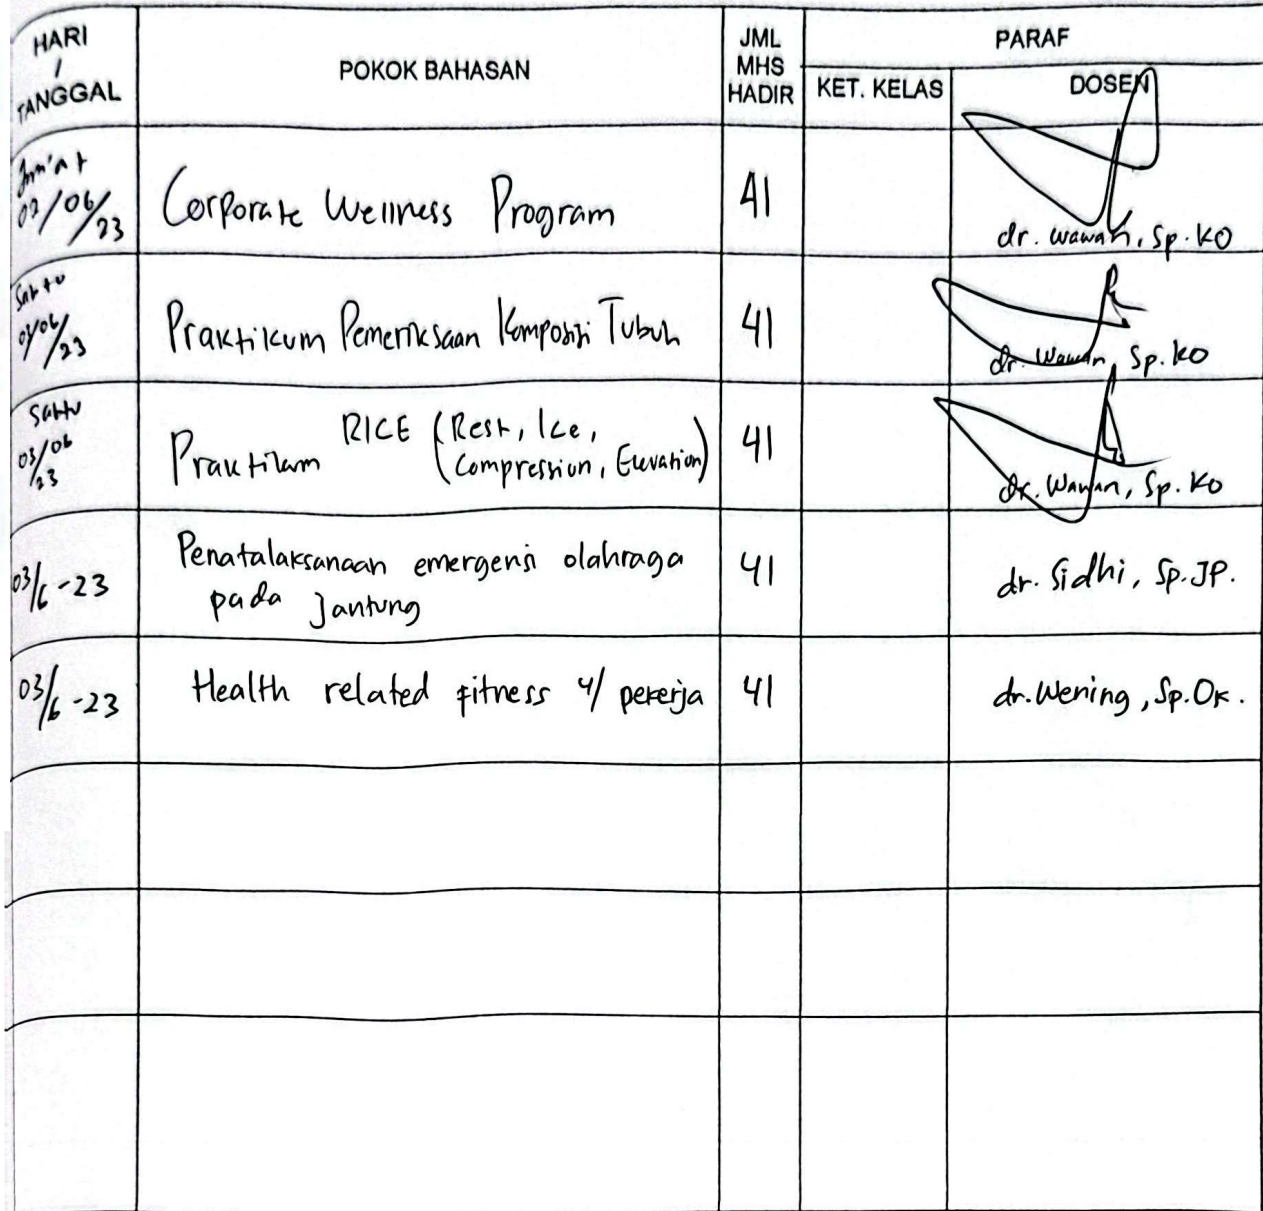 HARI
/
TANGGAL
POKOK BAHASAN
JML
MHS
HADIR
PARAF
KET. KELAS
DOSEN
Jum'at
02/06/23
Corporate Wellness Program
41
dr. Wawan, Sp. KO
Sabtu
03/06/23
Praktikum Pemeriksaan Komposisi Tubuh
41
dr. Wawan, Sp. KO
Sabtu
03/06/23
Praktikum RICE (Rest, Ice,
Compression, Elevation)
41
dr. Wawan, Sp. KO
03/6-23
Penatalaksanaan emergensi olahraga
pada Jantung
41
dr. Sidhi, Sp.JP.
03/6-23
Health related fitness u/ pekerja
41
dr. Wening, Sp.Ok.